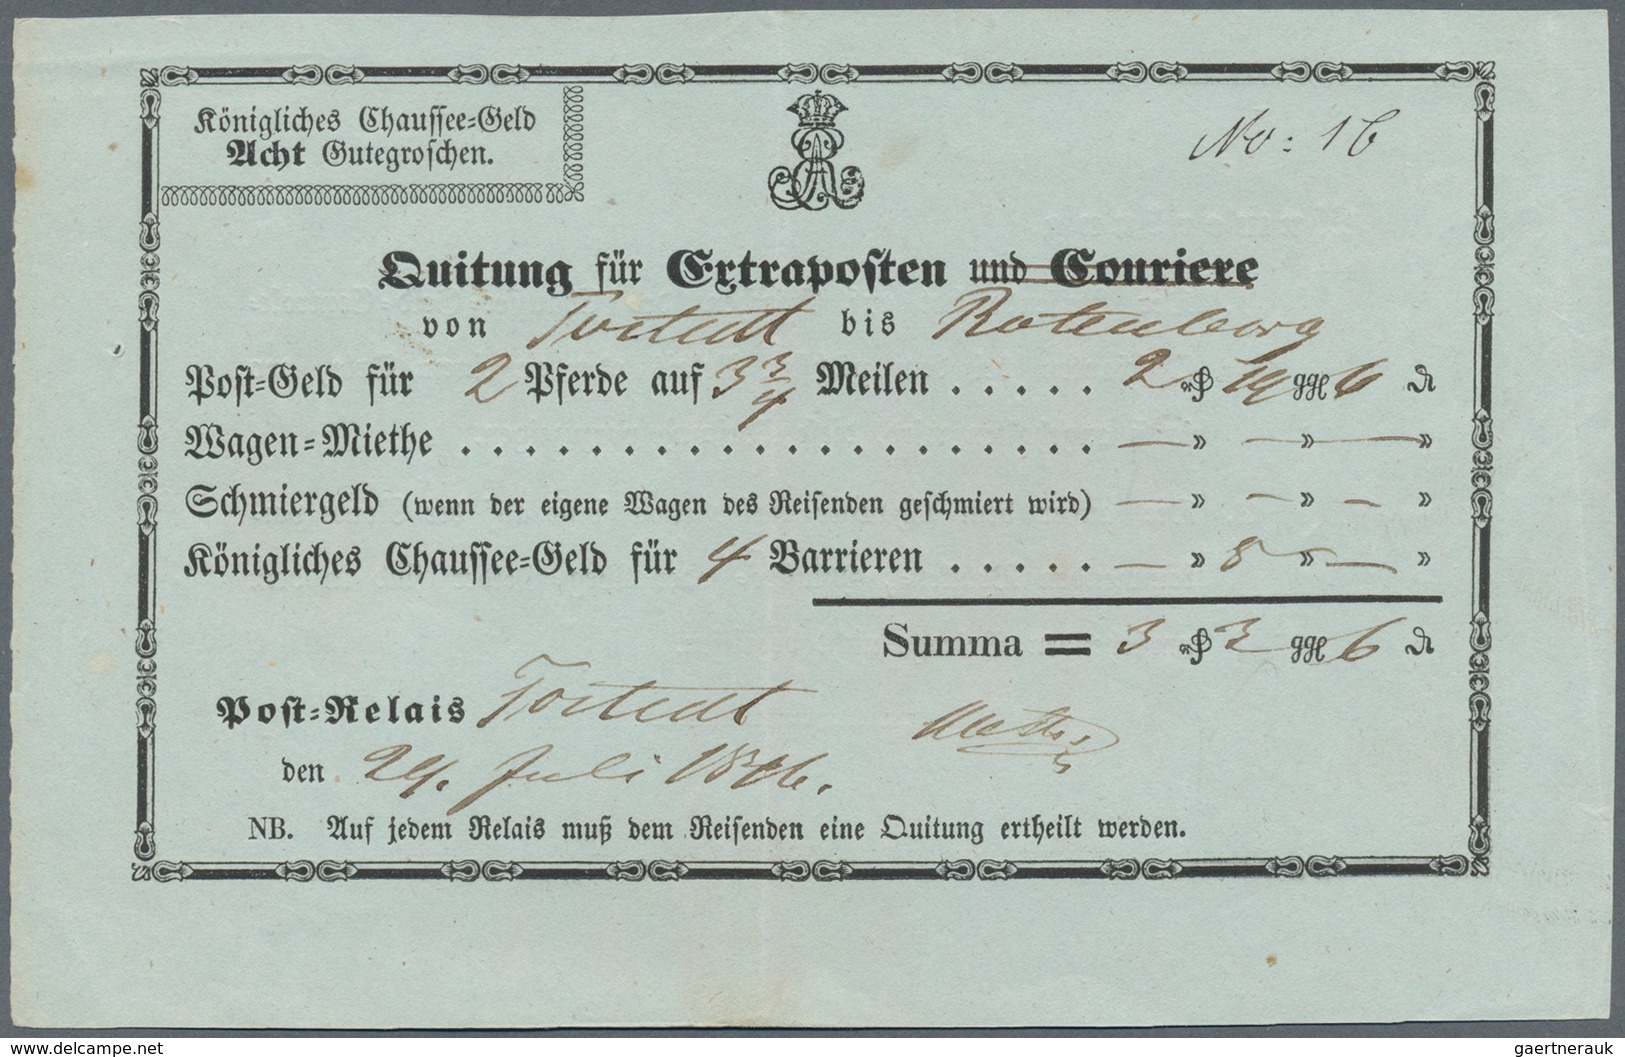 Königliches Chaussee=Geld
Acht Gutegroschen.
No: 16
Quitung für Extraposten und Couriere
von Tostedt bis Rotenburg
Post=Geld für 2 Pferde auf 3 3/4 Meilen . . . . . 2 rß 19 ggl 6 ₰
Wagen=Miethe . . . . . . . . . . . . . . . . . . . . — » — » — »
Schmiergeld (wenn der eigene Wagen des Reisenden geschmiert wird) — » — » — »
Königliches Chaussee=Geld für 4 Barrieren . . . . . — » 8 » — »
Summa = 3 rß 3 ggl 6 ₰
Post=Relais Tostedt
den 24. Juli 1846.
NB. Auf jedem Relais muß dem Reisenden eine Quitung ertheilt werden.
www.delcampe.net
gaertnerauk